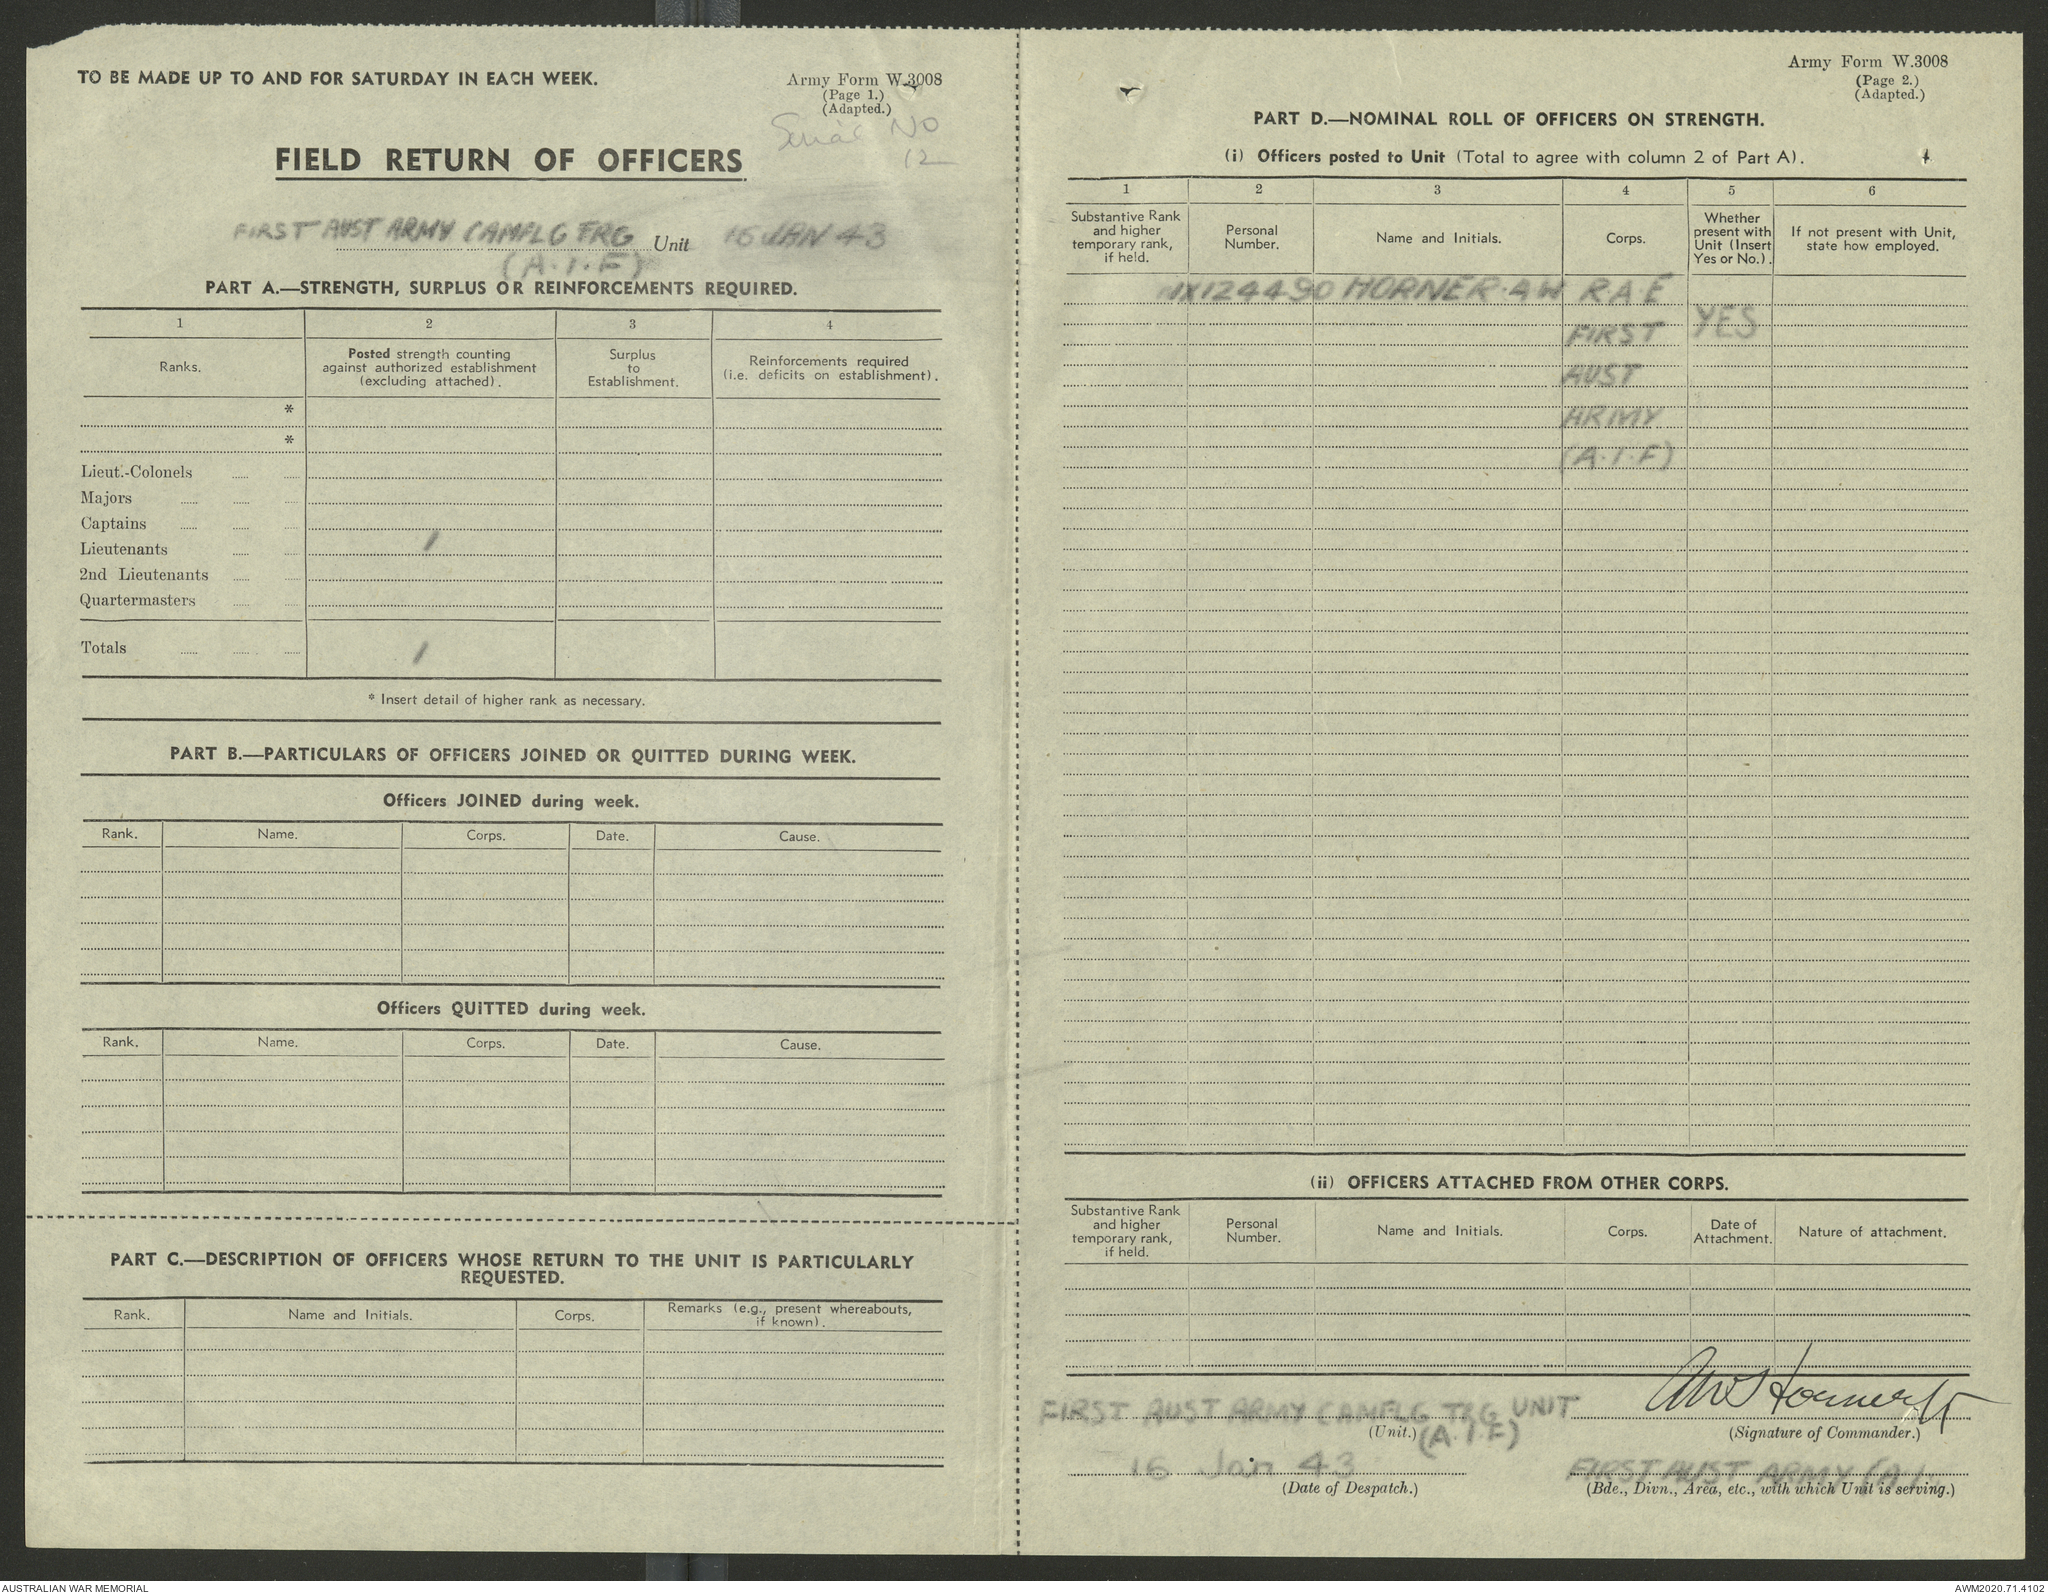 TO BE MADE UP TO AND FOR SATURDAY IN EACH WEEK.
Army Form W.3008
(Page 1.)
(Adapted.)
Serial NO
12
FIELD RETURN OF OFFICERS
FIRST AUST ARMY CAMFLG TRG Unit 16 JAN 43
(A.I.F)
PART A.—STRENGTH, SURPLUS OR REINFORCEMENTS REQUIRED.
1 2 3 4
Ranks.
Posted strength counting
against authorized establishment
(excluding attached).
Surplus
to
Establishment.
Reinforcements required
(i.e. deficits on establishment).
*
*
Lieut.-Colonels
Majors
Captains
Lieutenants 1
2nd Lieutenants
Quartermasters
Totals 1
* Insert detail of higher rank as necessary.
PART B.—PARTICULARS OF OFFICERS JOINED OR QUITTED DURING WEEK.
Officers JOINED during week.
Rank. Name. Corps. Date. Cause.
Officers QUITTED during week.
Rank. Name. Corps. Date. Cause.
PART C.—DESCRIPTION OF OFFICERS WHOSE RETURN TO THE UNIT IS PARTICULARLY
REQUESTED.
Rank. Name and Initials. Corps. Remarks (e.g., present whereabouts,
if known).
Army Form W.3008
(Page 2.)
(Adapted.)
PART D.—NOMINAL ROLL OF OFFICERS ON STRENGTH.
(i) Officers posted to Unit (Total to agree with column 2 of Part A).
1 2 3 4 5 6
Substantive Rank
and higher
temporary rank,
if held.
Personal
Number.
Name and Initials.
Corps.
Whether
present with
Unit (Insert
Yes or No.).
If not present with Unit,
state how employed.
NX124490 HORNER.AW RAE
FIRST YES
AUST
ARMY
(A.I.F)
(ii) OFFICERS ATTACHED FROM OTHER CORPS.
Substantive Rank
and higher
temporary rank,
if held.
Personal
Number.
Name and Initials.
Corps.
Date of
Attachment.
Nature of attachment.
FIRST AUST ARMY CAMFLG TRG UNIT
(Unit.) (A.I.F)
AW Horner Lt
(Signature of Commander.)
16 Jan 43
(Date of Despatch.)
FIRST AUST ARMY (A.I.
(Bde., Divn., Area, etc., with which Unit is serving.)
AUSTRALIAN WAR MEMORIAL
AWM2020.71.4102